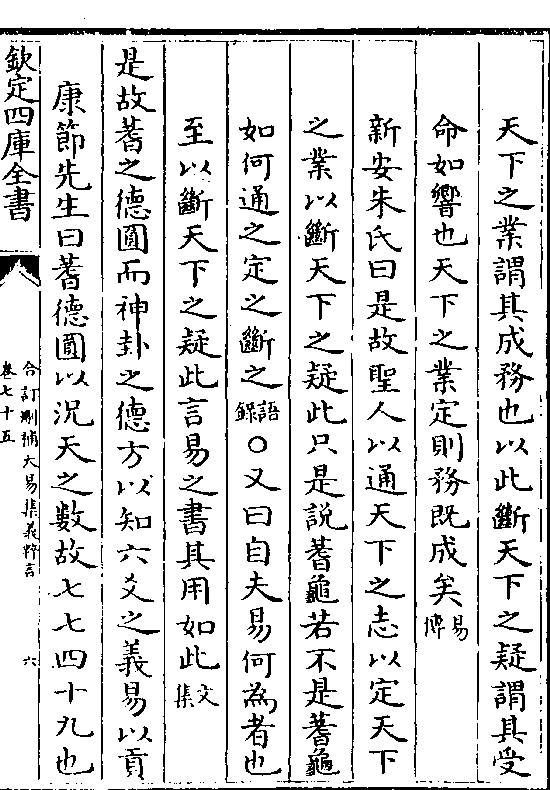 天下之業謂其成務也以此斷天下之疑謂其受
命如響也天下之業定則務既成矣易傳
新安朱氏曰是故聖人以通天下之志以定天下
之業以斷天下之疑此只是說蓍龜若不是蓍龜
如何通之定之斷之語錄○又曰自夫易何為者也
至以斷天下之疑此言易之書其用如此文集
是故蓍之德圓而神卦之德方以知六爻之義易以貢
康節先生曰蓍德圓以況天之數故七七四十九也
欽定四庫全書
合訂刪補大易集義粹言
卷七十五
六